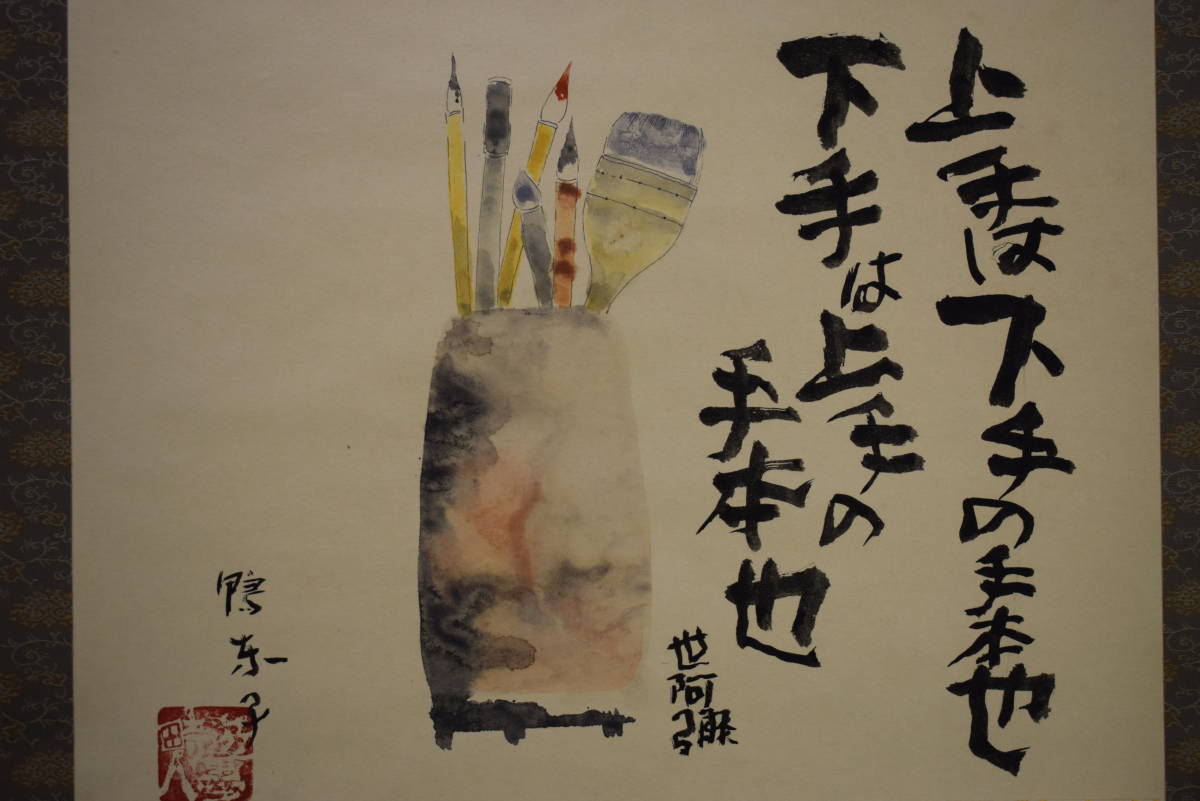 上手は下手の手本也
下手は上手の
手本也
世阿彌
鴨東子